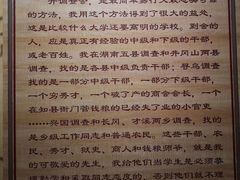 开调查会，是最简单易行又最忠实可靠的
方法，我用这个方法得到了很大的益处，
这是比较什么大学还要高明的学校。到会的
人，应是真正有经验的中级和下级的干部，
或老百姓。我在湖南五县调查和井冈山两县
调查，找的是各县中级负责干部；寻乌调查
找的是一部分中级干部，一部分下级干部，
一个穷秀才，一个破了产的商会会长，一个
在知县衙门管钱粮的已经失了业的小官吏。
……兴国调查和长冈、才溪两乡调查，找的
是乡级工作同志和普通农民。这些干部、农
民、秀才、狱吏、商人和钱粮师爷，就是我
的可敬爱的先生，我给他们当学生是必须恭